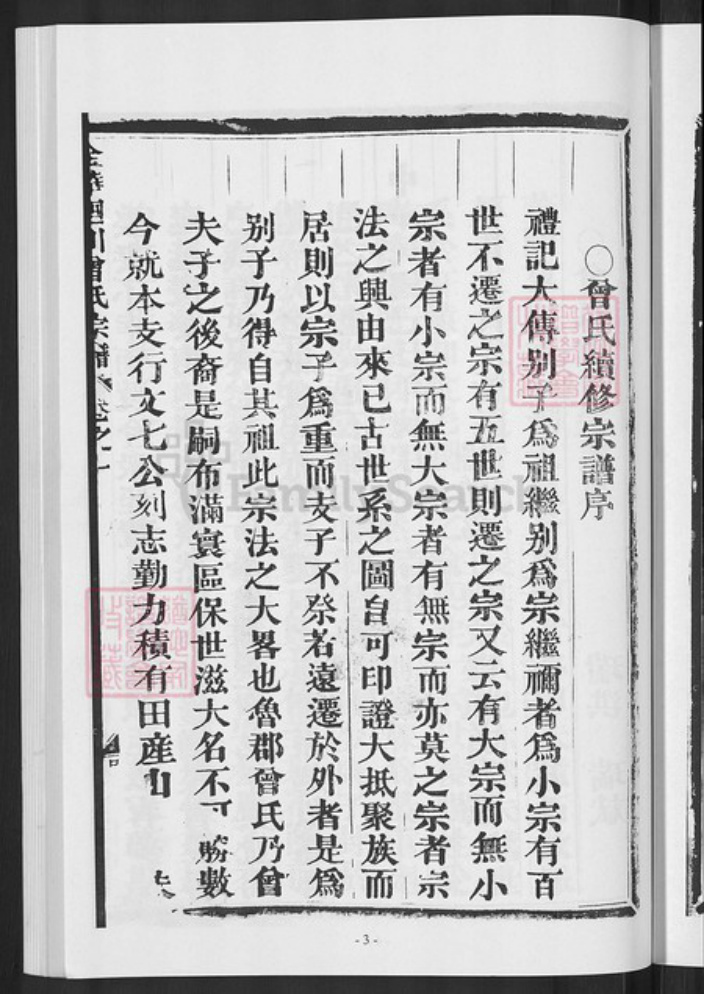 ○曾氏續修宗譜序
禮記大傳别子爲祖繼别爲宗繼禰者爲小宗有百
世不遷之宗有五世則遷之宗又云有大宗而無小
宗者有小宗而無大宗者有無宗而亦莫之宗者宗
法之興由來已古世系之圖自可印證大抵聚族而
居則以宗子爲重而支子不祭若遠遷於外者是爲
别子乃得自其祖此宗法之大畧也魯郡曾氏乃曾
夫子之後裔是嗣布滿寰區保世滋大名不可勝數
今就本支行文七公刻志勤力積有田産
川曾氏宗譜 卷之一
FamilySearch
- 3 -